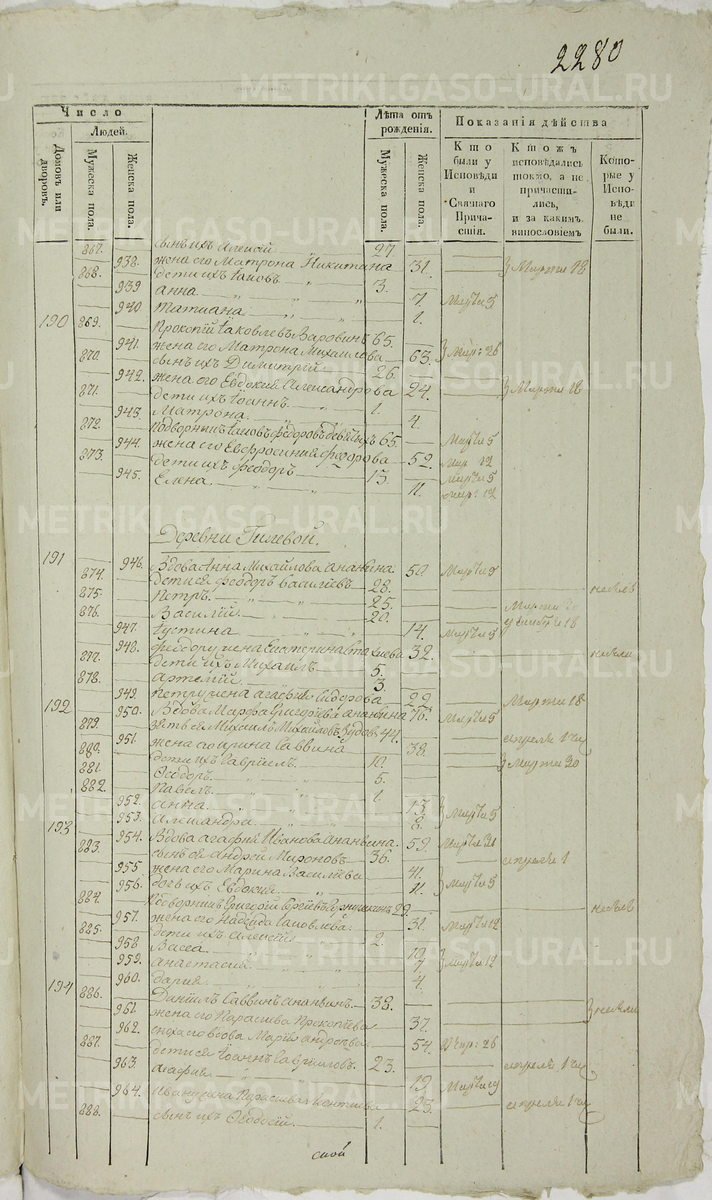 2280
Число
Людей.
Домовъ или дворовъ.
Мужеска пола.
Женска пола.
Лѣта отъ рожденія.
Мужеска пола.
Женска пола.
Показанія дѣйства
Кто были у Исповѣди и Святаго Причастія.
Ктожъ исповѣдались токмо, а не причастились, и за какимъ винословіемъ
Которые у Исповѣди не были.
867. сынъ ихъ Алексѣй 27
938. жена его Матрона Никитина 31. Марта 18
868. дети ихъ Іаковъ 3.
939 Анна 7. Марта 5
940 Татиана 1.
190 869. Прокопій Іаковлевъ Варовинъ 65.
941. жена его Матрона Михаилова 63. 26
870. сынъ ихъ Димитрій 26.
942. жена его Евдокія Александрова 24. Марта 18
871. дети ихъ Іоаннъ 1.
943. Матрона 4.
872. Подворникъ Іаковъ Ѳедоровъ 65. Марта 5
944. жена его Евфросинія Ѳеодорова 52. Мар 12
873. дети ихъ Ѳеодоръ 13. Марта 5
945. Елена 11. 12
Деревни Гилевой.
191 946. Вдова Анна Михаилова Ананьина 50 Марта
874. дети ея Ѳеодоръ Василіевъ 28. не былъ
875. Петръ 25. Марта
876. Василій 20. 18
947. Іустина 14. Марта 5
948. Ѳеодору жена Екатерина 32. не была
877. дети ихъ Михаилъ 5.
878. Артемій 3.
949. Петру жена Агафія Сидорова 29. Марта 18
192 950. Вдова Марфа Григорьева Ананьина 76. Марта 5
879. зять ея Михаилъ Михаиловъ 44. апреля 1
951. жена его Ирина Саввина 38.
880. дети их Гавріилъ 10. Марта 20
881. Ѳедоръ 5.
882. Павелъ 1.
952. Анна 13. Марта 5
953. Александра 8.
193 954. Вдова Агафія Иванова Ананьина 59. Марта 21
883. сынъ ея Андрей Мироновъ 36. апреля 1
955. жена его Марина Васильева 41. Марта 5
956. дочь ихъ Евдокія 11.
884. Подворникъ Григорій Сергіевъ 29. не былъ
957. жена его Надежда Іаковлева 31. Марта 12
885. дети ихъ Алексѣй 2.
958 Васса 10
959. Анастасія 7 Марта 12
960. Дарія 4.
194 886. Даніилъ Саввинъ Ананьинъ 38. не были
961. жена его Параскева Прокопіева 37.
962. сноха его вдова Марія Андреева 54. 26
887. дети ея Іоаннъ Гавриловъ 23. апреля 1
963. Агафія 19. Марта 19
964. Ивану жена Параскева 23. апреля 1
888. сынъ ихъ Ѳеодосій 1.
METRIKI.GASO-URAL.RU